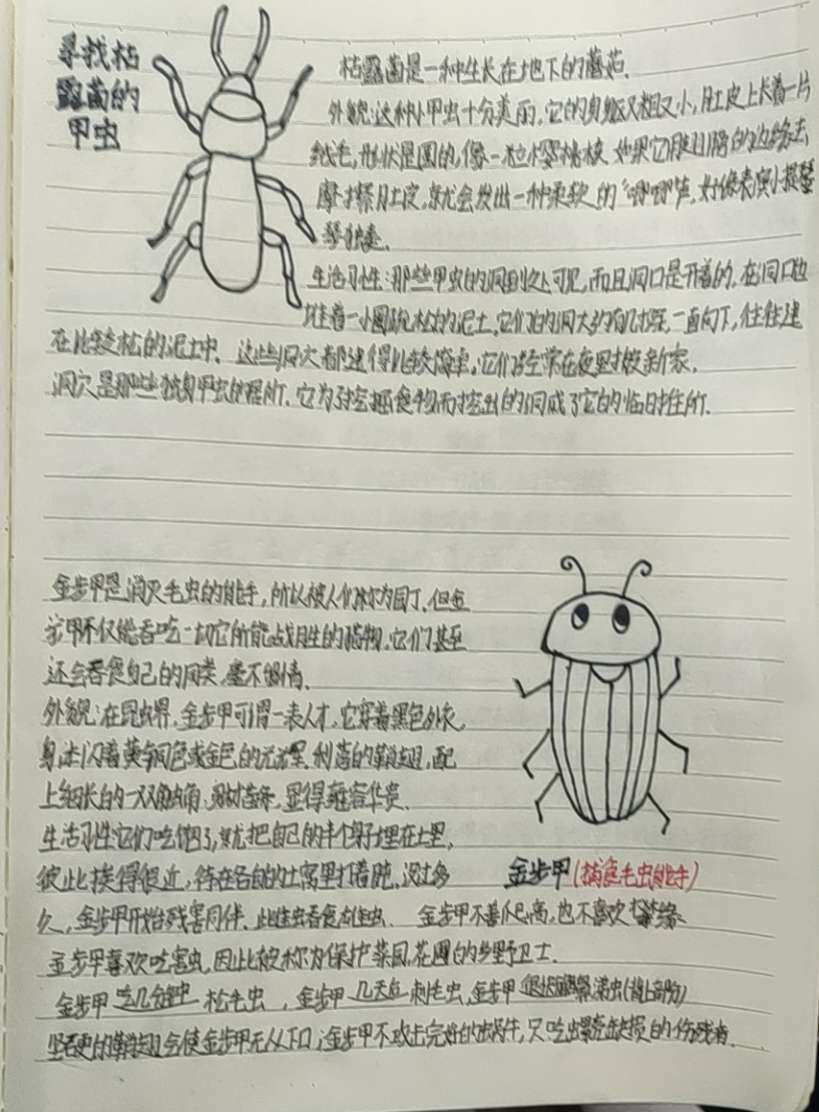 寻找枯
露菌的
甲虫
枯露菌是一种生长在地下的蘑菇.
外貌:这种小甲虫十分美丽.它的身躯又粗又小,肚皮上长着一片
绒毛,形状是圆的,像一粒樱桃核.如果它用翅膀的边缘去
摩擦肚皮,就会发出一种柔软的“唧唧”声,好像表演小提琴
琴独奏.
生活习性:那些甲虫的洞到处可见,而且洞口是开着的.在洞口边
堆着一小圈疏松的泥土.它们的洞大约有几寸深,一直向下,往往建
在比较松的泥土中.这些洞穴都建得比较简单,它们经常在夜里搬新家.
洞穴是那些独身甲虫的居所.它为了挖掘食物而挖出的洞成了它的临时住所.
金步甲是消灭毛虫的能手,所以被人们称为园丁.但金
步甲不仅能吞吃一切它所能战胜的猎物.它们甚至
还会吞食自己的同类,毫不留情.
外貌:在昆虫界.金步甲可谓一表人才,它穿着黑色外衣,
身体闪着黄铜色或金色的光泽.利落的鞘翅,配
上细长的一双触角,显得雍容华贵.
生活习性:它们吃饱了,就把自己的半个身子埋在土里,
彼此挨得很近,待在各自的土窝里打着盹.没过多
久,金步甲开始残害同伴.此雌虫吞食雄虫.金步甲不善爬高,也不喜欢攀缘.
金步甲喜欢吃害虫,因此被称为保护菜园,花圃的乡野卫士.
金步甲(捕食毛虫能手)
金步甲 吃几分钟 松毛虫,金步甲 几天后 刺毛虫,金步甲
坚硬的鞘翅会使金步甲无从下口;金步甲不攻击完好的蜗牛,只吃出壳缺损的伤残者.